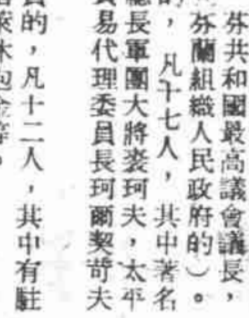 芬共和國最高議會議長，
芬蘭組織人民政府的）。
的，凡十七人，其中著名
總長軍團大將裘珂夫，太平
易代理委員長珂爾契苛夫
的，凡十二人，其中有駐